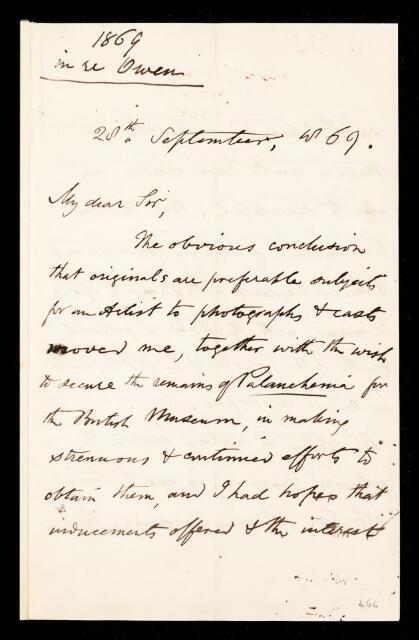 1869
in re Owen
28th September, 1869.
My dear Sir,
The obvious conclusion
that originals are preferable subjects
for an Artist to photographs & casts
moved me, together with the wish
to secure the remains of Palauchenia for
the British Museum, in making
strenuous & continued efforts to
obtain them, and I had hopes that
inducements offered & the interest
464